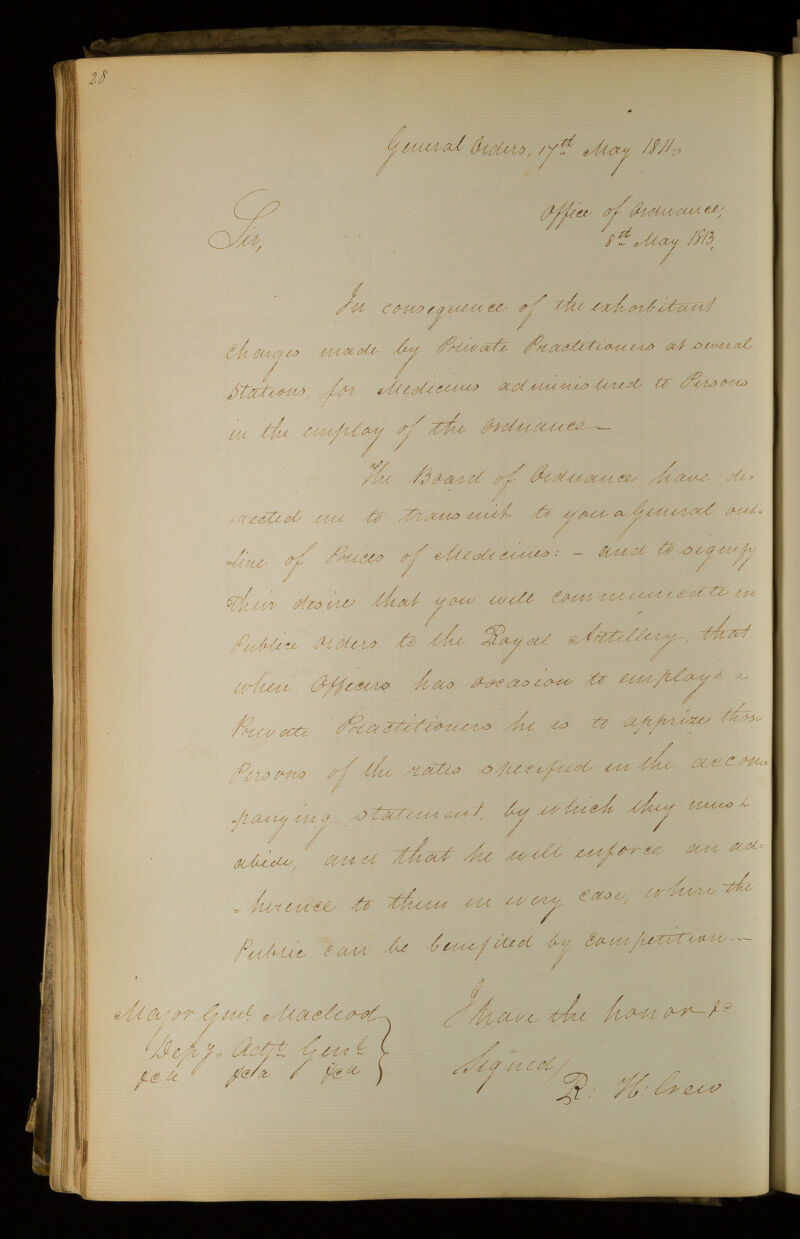 28
General Orders, 17th May 1811,
Office of Ordnance,
8th May 1813,
Sir,
In consequence of the exhorbitant
Charges made by Private Practetioners at several
Stations, for Medicines administered to Persons
in the employ of the Ordnance —
The Board of Ordnance have di=
=rected me to transmit to you a General out=
=line of Prices of Medicines: - and to signify
Their desire that you will communicate in
Publice orders to the Royal Artillery, that
when Officers has occasion to employ a
Private Practitioners he is to apprize those
Persons of the rates specified in the accom=
=panying statement, by which they must
abide, and that he will enforce an ad=
=herence to them in every case, where the
Public can be benefited by Competition. —
Major Genl. Macleod
Depy. Adjt. Genl.
&ca &ca &ca
I have the honor &c
Signed/
R: H: Crew